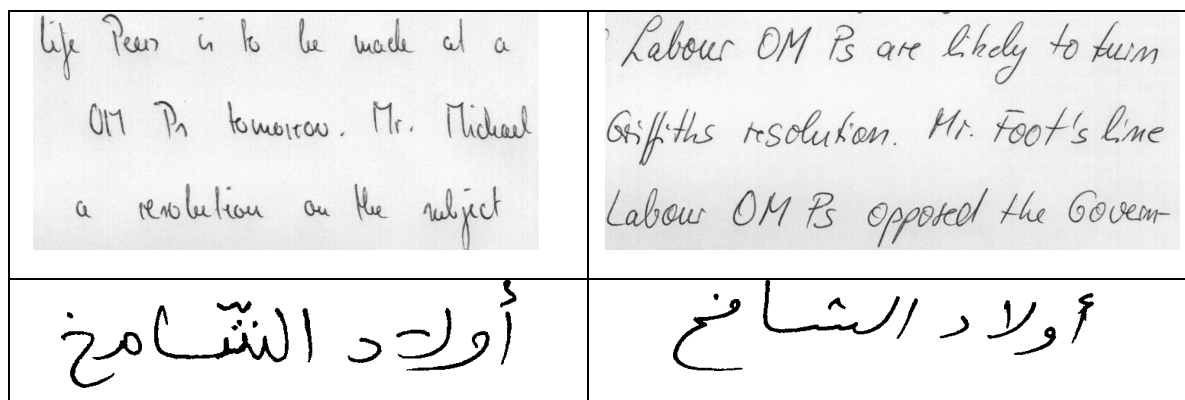 life Peers is to be made at a
OM Ps tomorrow. Mr. Michael
a resolution on the subject
Labour OM Ps are likely to turn
Griffiths resolution. Mr. Foot's line
Labour OM Ps opposed the Govern-
أولاد الشّامخ
أولاد الشامخ